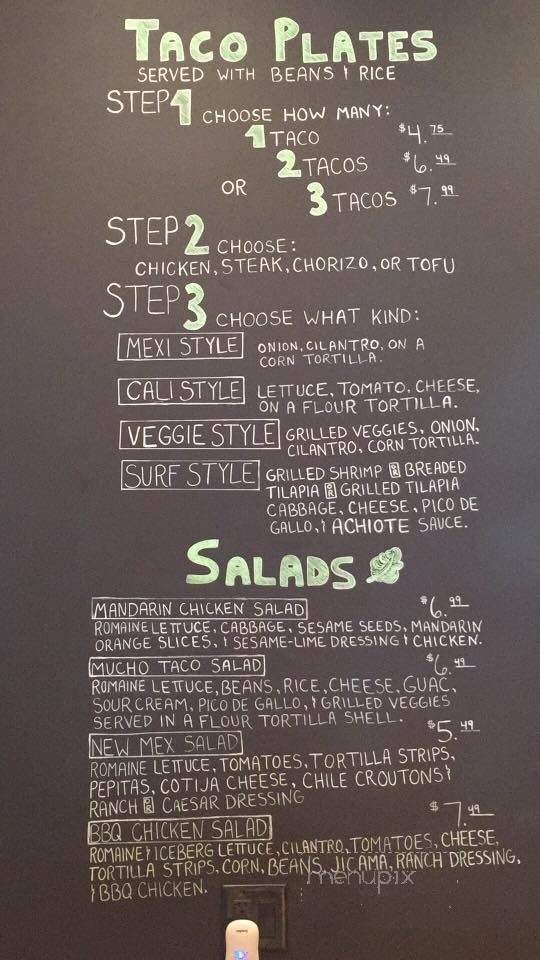 TACO PLATES
SERVED WITH BEANS & RICE
STEP 1 CHOOSE HOW MANY:
1 TACO $4.75
2 TACOS $6.49
OR 3 TACOS $7.99
STEP 2 CHOOSE:
CHICKEN, STEAK, CHORIZO, OR TOFU
STEP 3 CHOOSE WHAT KIND:
MEXI STYLE ONION, CILANTRO, ON A
CORN TORTILLA.
CALI STYLE LETTUCE, TOMATO, CHEESE,
ON A FLOUR TORTILLA.
VEGGIE STYLE GRILLED VEGGIES, ONION,
CILANTRO, CORN TORTILLA.
SURF STYLE GRILLED SHRIMP OR BREADED
TILAPIA OR GRILLED TILAPIA
CABBAGE, CHEESE, PICO DE
GALLO, & ACHIOTE SAUCE.
SALADS
MANDARIN CHICKEN SALAD $6.99
ROMAINE LETTUCE, CABBAGE, SESAME SEEDS, MANDARIN
ORANGE SLICES, & SESAME-LIME DRESSING & CHICKEN.
MUCHO TACO SALAD $6.49
ROMAINE LETTUCE, BEANS, RICE, CHEESE, GUAC,
SOUR CREAM, PICO DE GALLO, & GRILLED VEGGIES
SERVED IN A FLOUR TORTILLA SHELL.
NEW MEX SALAD $5.49
ROMAINE LETTUCE, TOMATOES, TORTILLA STRIPS,
PEPITAS, COTIJA CHEESE, CHILE CROUTONS &
RANCH OR CAESAR DRESSING
BBQ CHICKEN SALAD $7.49
ROMAINE & ICEBERG LETTUCE, CILANTRO, TOMATOES, CHEESE,
TORTILLA STRIPS, CORN, BEANS, JICAMA, RANCH DRESSING,
& BBQ CHICKEN.
menupix